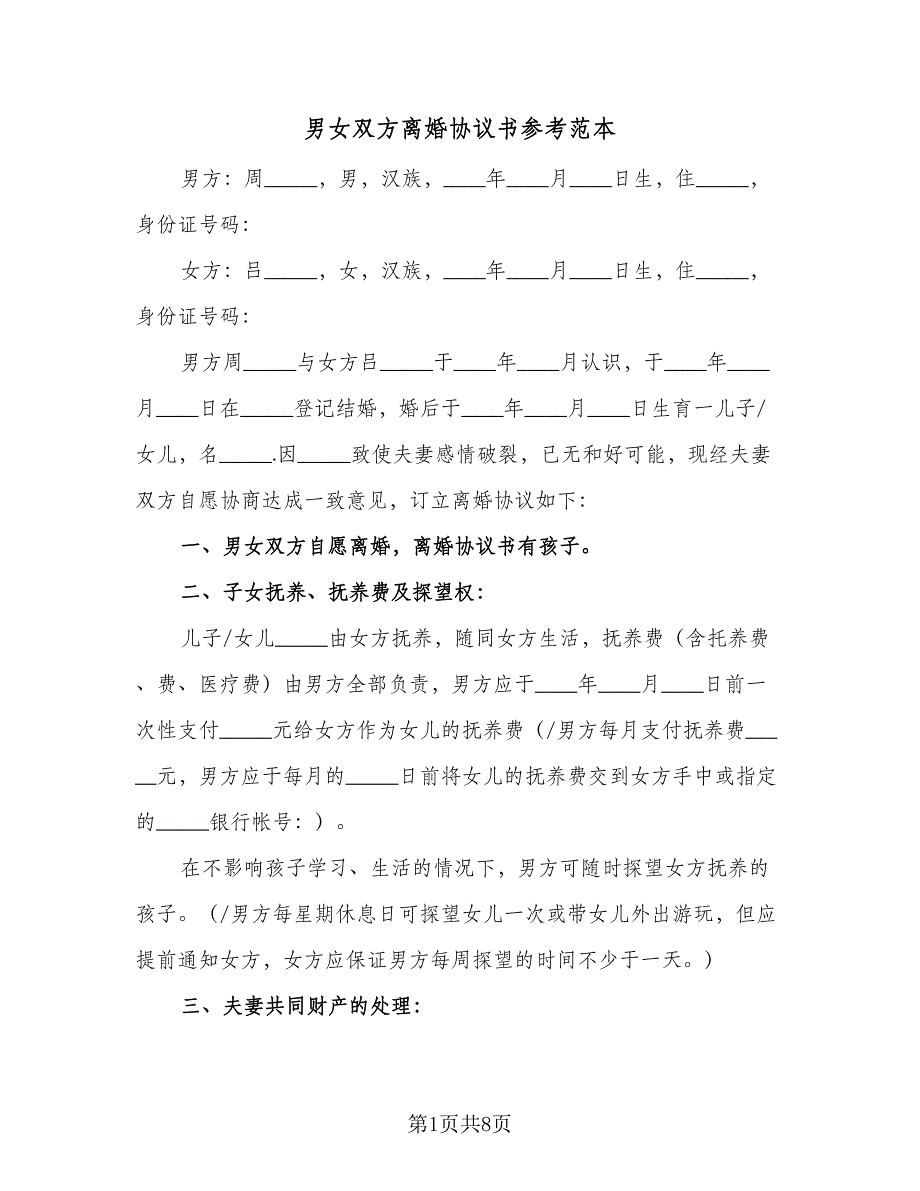 男女双方离婚协议书参考范本
男方：周_____，男，汉族，____年____月____日生，住_____，
身份证号码：
女方：吕_____，女，汉族，____年____月____日生，住_____，
身份证号码：
男方周_____与女方吕_____于____年____月认识，于____年____
月____日在_____登记结婚，婚后于____年____月____日生育一儿子/
女儿，名_____.因_____致使夫妻感情破裂，已无和好可能，现经夫妻
双方自愿协商达成一致意见，订立离婚协议如下：
一、男女双方自愿离婚，离婚协议书有孩子。
二、子女抚养、抚养费及探望权：
儿子/女儿_____由女方抚养，随同女方生活，抚养费（含托养费
、费、医疗费）由男方全部负责，男方应于____年____月____日前一
次性支付_____元给女方作为女儿的抚养费（/男方每月支付抚养费___
__元，男方应于每月的_____日前将女儿的抚养费交到女方手中或指定
的_____银行帐号：）。
在不影响孩子学习、生活的情况下，男方可随时探望女方抚养的
孩子。（/男方每星期休息日可探望女儿一次或带女儿外出游玩，但应
提前通知女方，女方应保证男方每周探望的时间不少于一天。）
三、夫妻共同财产的处理：
第1页共8页